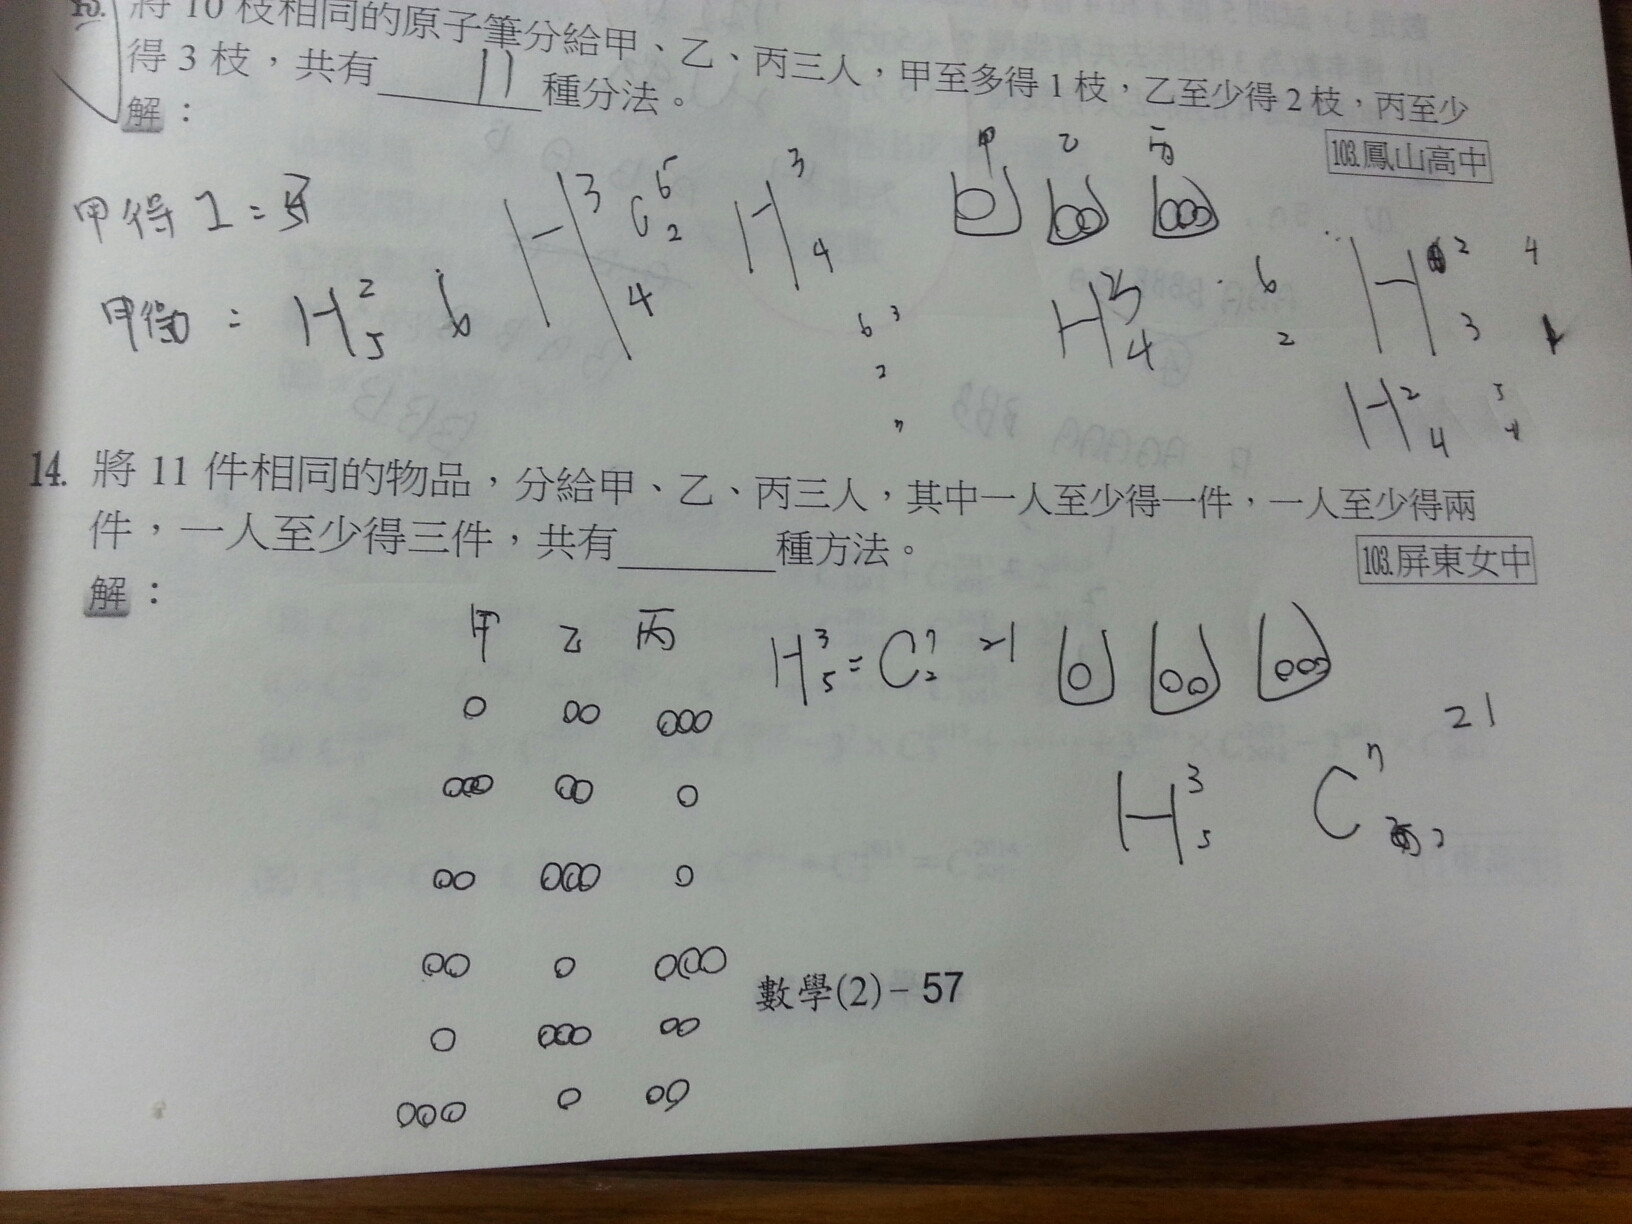 將10枝相同的原子筆分給甲、乙、丙三人，甲至多得1枝，乙至少得2枝，丙至少
得3枝，共有 11 種分法。
103.鳳山高中
解：
甲 乙 丙
甲得1=5
H³₄ C⁶₂ H³₄
甲得0 = H²₅ 6
H³₄ 6 2
H²₃ 4
H²₄
14. 將11件相同的物品，分給甲、乙、丙三人，其中一人至少得一件，一人至少得兩
件，一人至少得三件，共有 種方法。
103.屏東女中
解：
甲 乙 丙
H³₅=C⁷₂ 21
21
H³₅ C⁷₂
數學(2)－57